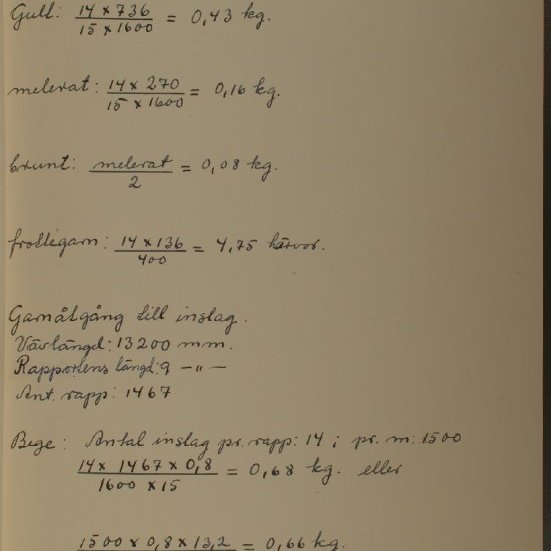 Gult: 14 x 736 / 15 x 1600 = 0,43 kg.
melerat: 14 x 270 / 15 x 1600 = 0,16 kg.
brunt: melerat / 2 = 0,08 kg.
frottégarn: 14 x 136 / 400 = 4,75 härvor.
Garnåtgång till inslag.
Vävlängd: 13200 mm.
Rapportens längd: 9 — " —
Ant. rapp: 1467
Bege: Antal inslag pr. rapp: 14; pr. m: 1500
14 x 1467 x 0,8 / 1600 x 15 = 0,68 kg. eller
1500 x 0,8 x 13,2 = 0,66 kg.